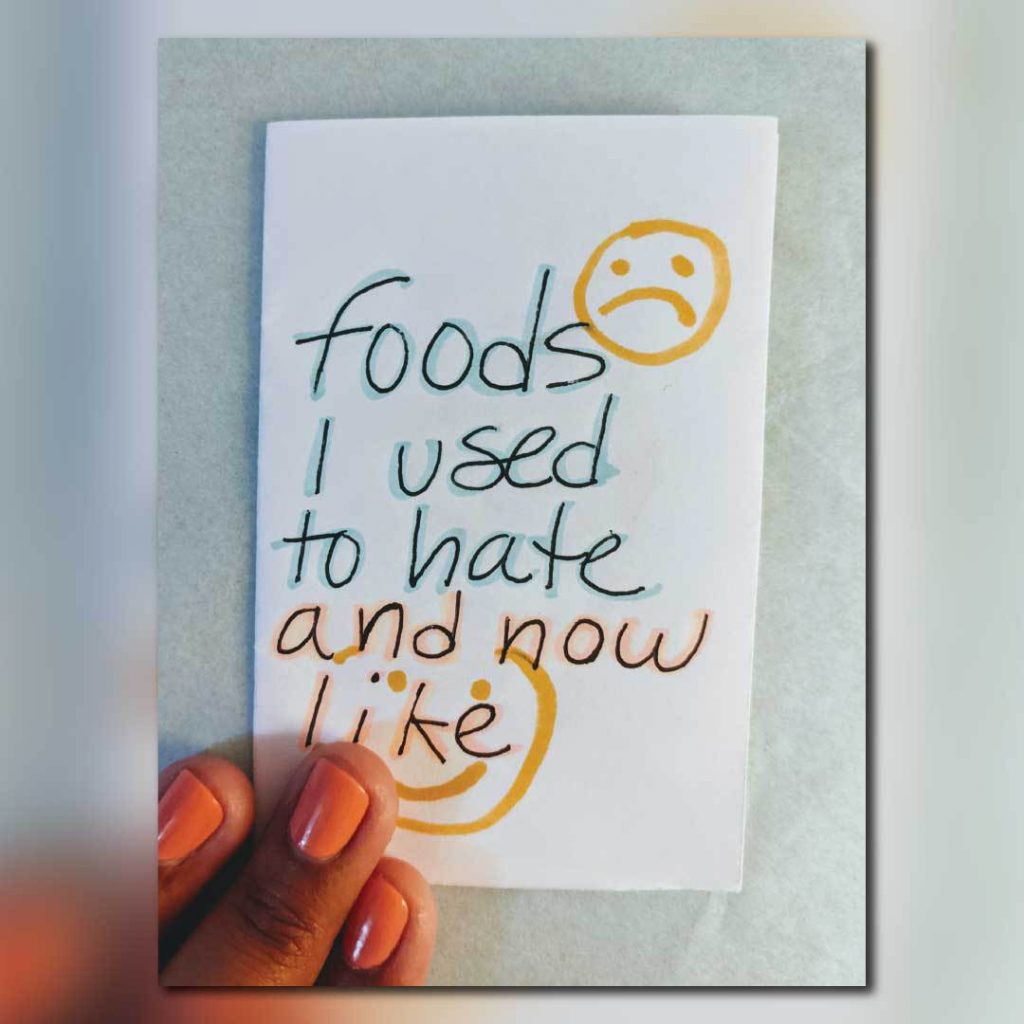 foods
I used
to hate
and now
like